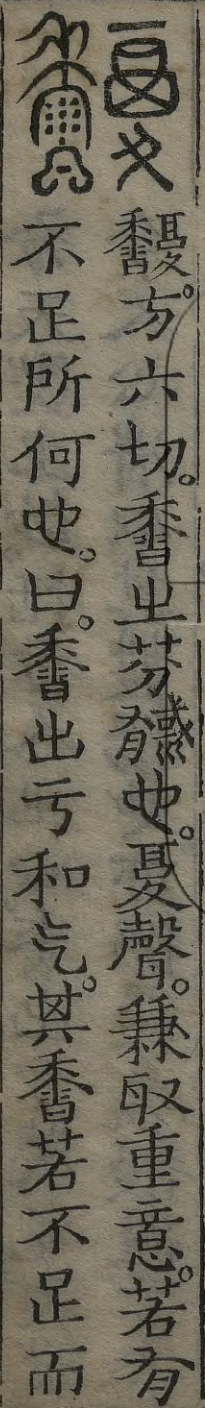 馥。方六切。𪏽㞢芬也。复聲。兼取重意。若有
不足所何也。曰。𪏽出亏和气。其𪏽若不足而